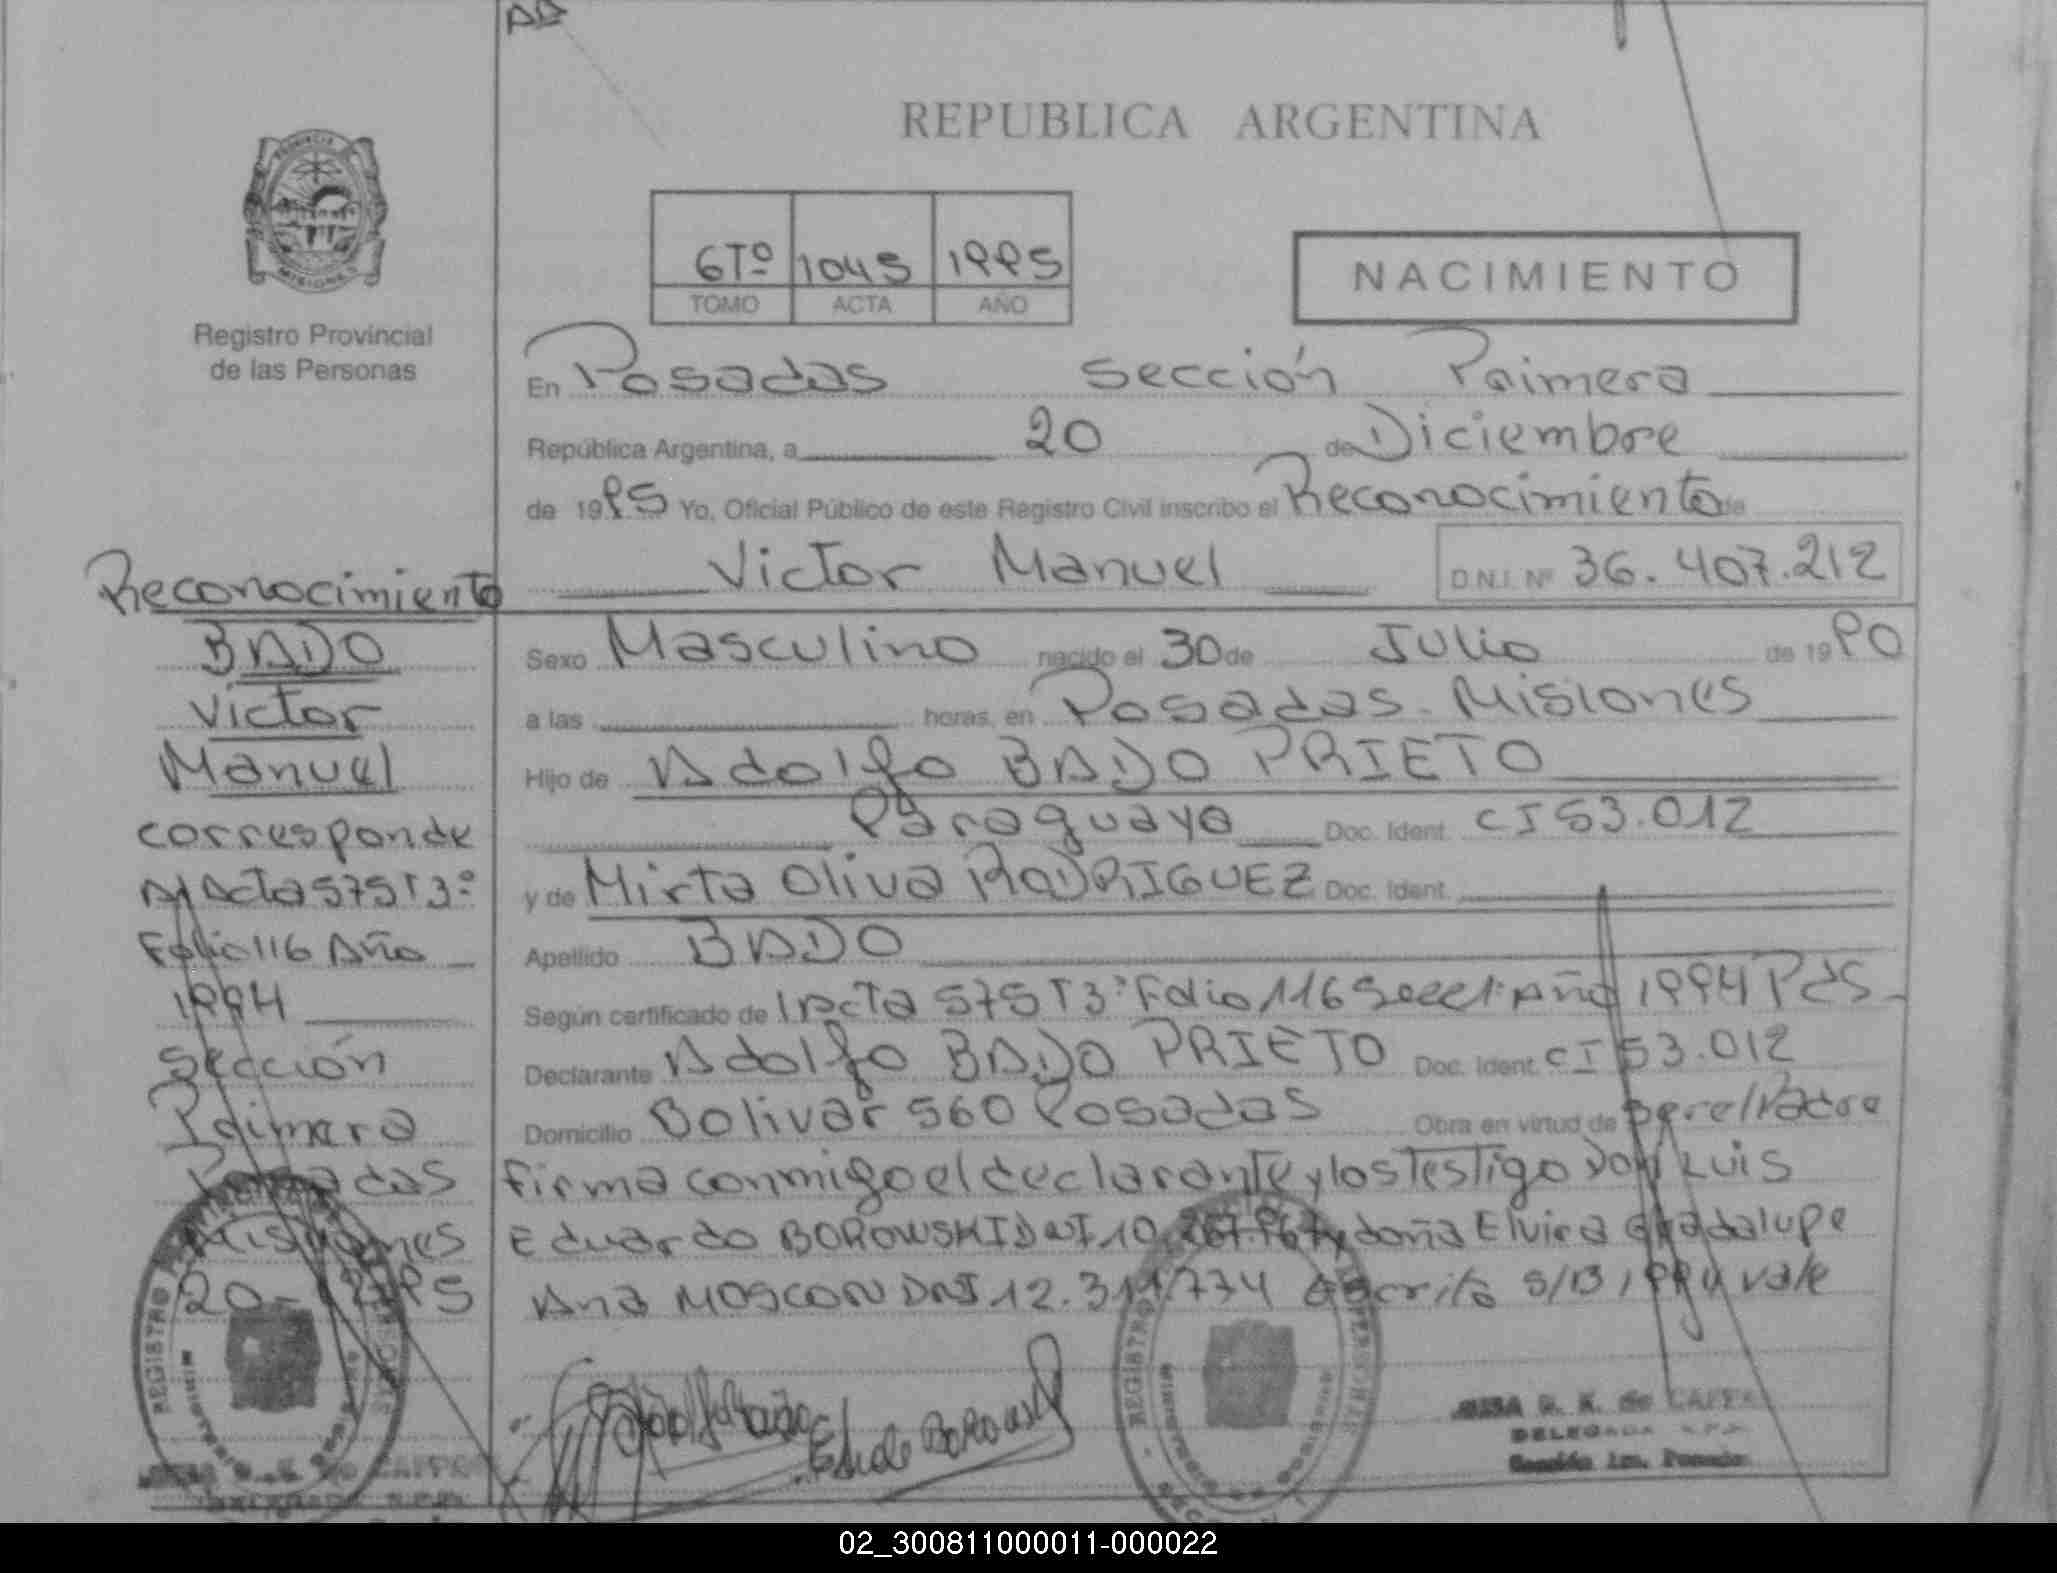 REPUBLICA ARGENTINA
6Tº 1045 1995
TOMO ACTA AÑO
NACIMIENTO
Registro Provincial
de las Personas
En Posadas Sección Primera
República Argentina, a 20 de Diciembre
de 1995 Yo, Oficial Público de este Registro Civil inscribo el Reconocimiento de
Victor Manuel D.N.I. Nº 36.407.212
Sexo Masculino nacido el 30 de Julio de 1990
a las horas, en Posadas - Misiones
Hijo de Adolfo BADO PRIETO
Paraguayo Doc. Ident. CI 53.012
y de Mirta Oliva RODRIGUEZ Doc. Ident.
Apellido BADO
Según certificado de Acta 575 T3º Folio 116 Año 1994 Pds
Declarante Adolfo BADO PRIETO Doc. Ident. CI 53.012
Domicilio Bolivar 560 Posadas Obra en virtud de ser el Padre
firma conmigo el declarante y los Testigo Don Luis
Eduardo BOROWSKI DNI 10. y doña Elvira Guadalupe
Ana MOSCON DNI 12. 774 escrito S/B 1994 vale
Reconocimiento
BADO
Victor
Manuel
corresponde
Al Acta 575 T3º
Folio 116 Año
1994
Sección
Primera
Posadas
Misiones
REGISTRO
REGISTRO
DELEGADA
02_300811000011-000022